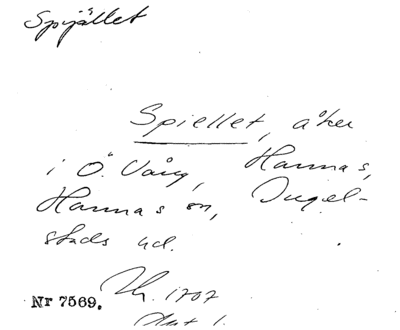 Spijället
Spiellet, åker
i Ö. Vång, Hannas,
Hannas sn, Ingel-
stads hd.
Nr 7569. 1707
Akt 1.